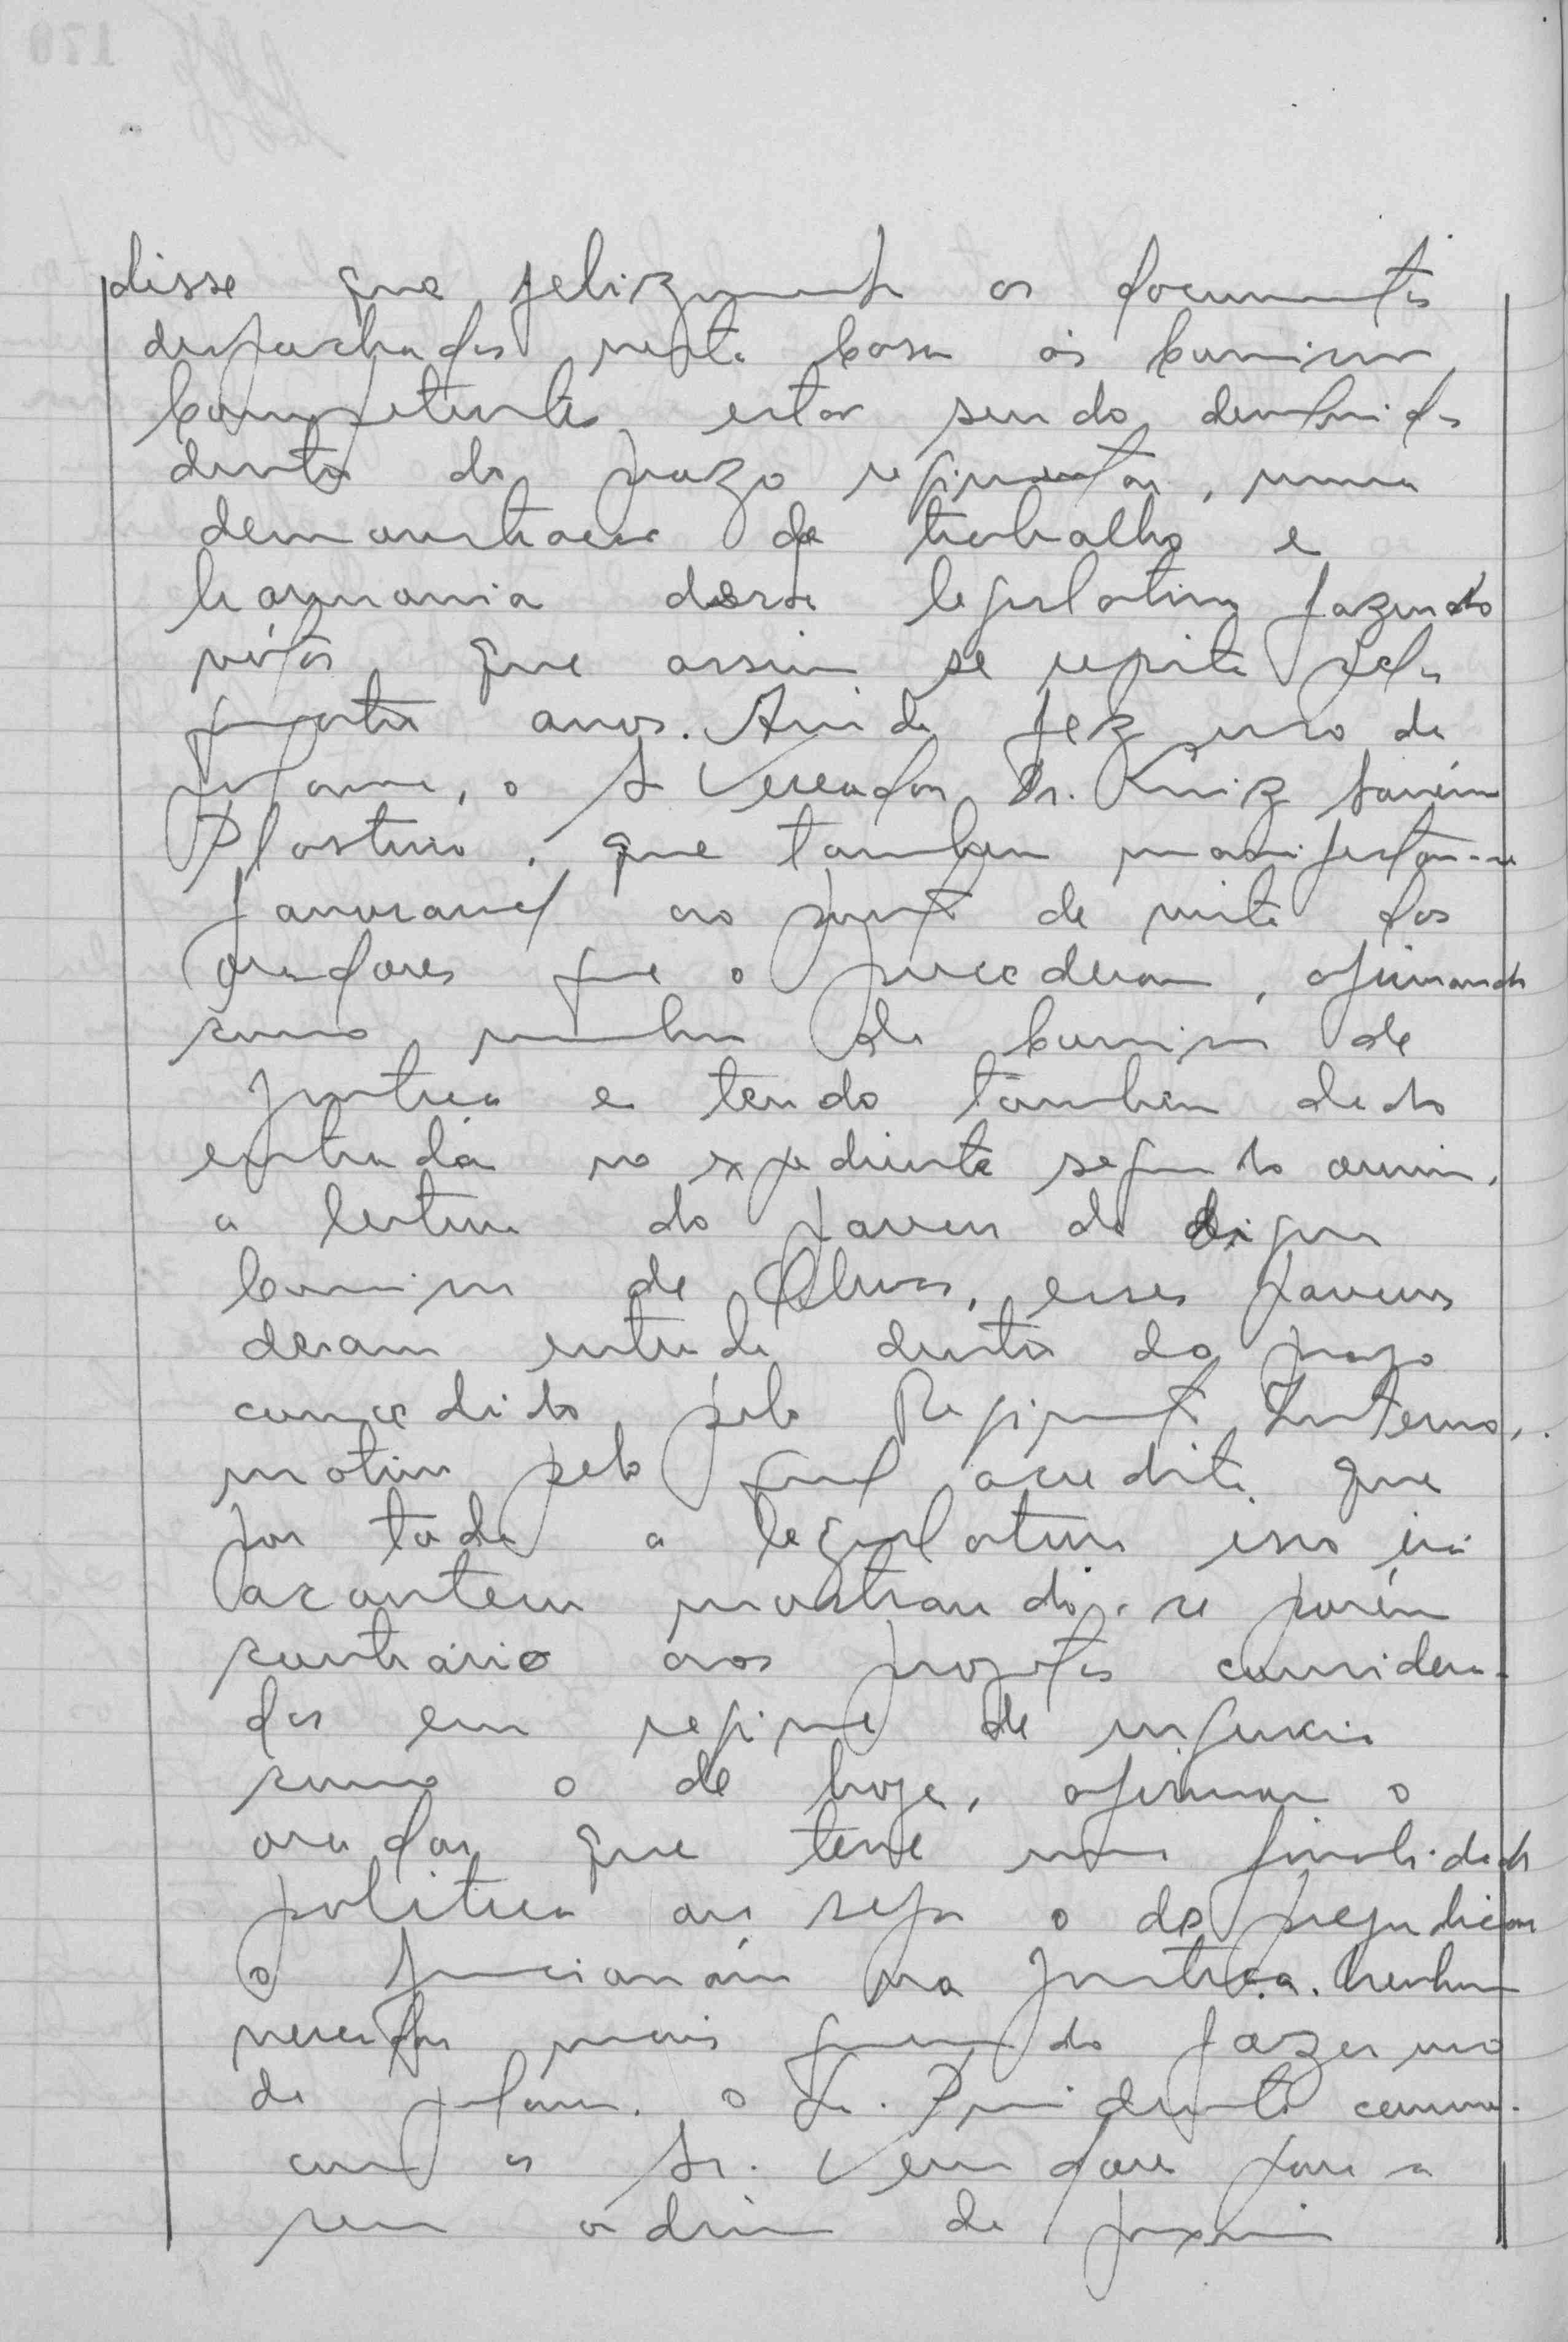 disse que felizmente os documentos
despachados nesta Casa às Comissões
Competentes estão sendo devolvidos
dentro do prazo regimental, numa
demonstração de trabalho e
harmonia desse legislativo fazendo
votos que assim se repita pelos
quatro anos. Ainda fez uso da
palavra, o Sr Vereador Dr. Luiz
que também manifestou-se
favoravel ao ponto de vista dos
oradores que o precederam, afirmando
como membro da Comissão de
Justiça e tendo também dado
entrada no expediente segundo ouviu,
a leitura do parecer da digna
Comissão de Obras, esses pareceres
deram entrada dentro do prazo
concedido pelo Regimento Interno,
motivo pelo qual acredita que
por toda a legislatura isso irá
acontecer mostrando-se porém
contrário aos projetos considera-
dos em regime de urgencia
como o de hoje, afirmou o
orador que teve uma finalidade
politica ou seja o de prejudicar
o funcionário na Justiça. Nenhum
vereador mais querendo fazer uso
da palavra, o Sr. Presidente convo-
cou os Sr. Vereadores para a
sessão ordinária da próxima